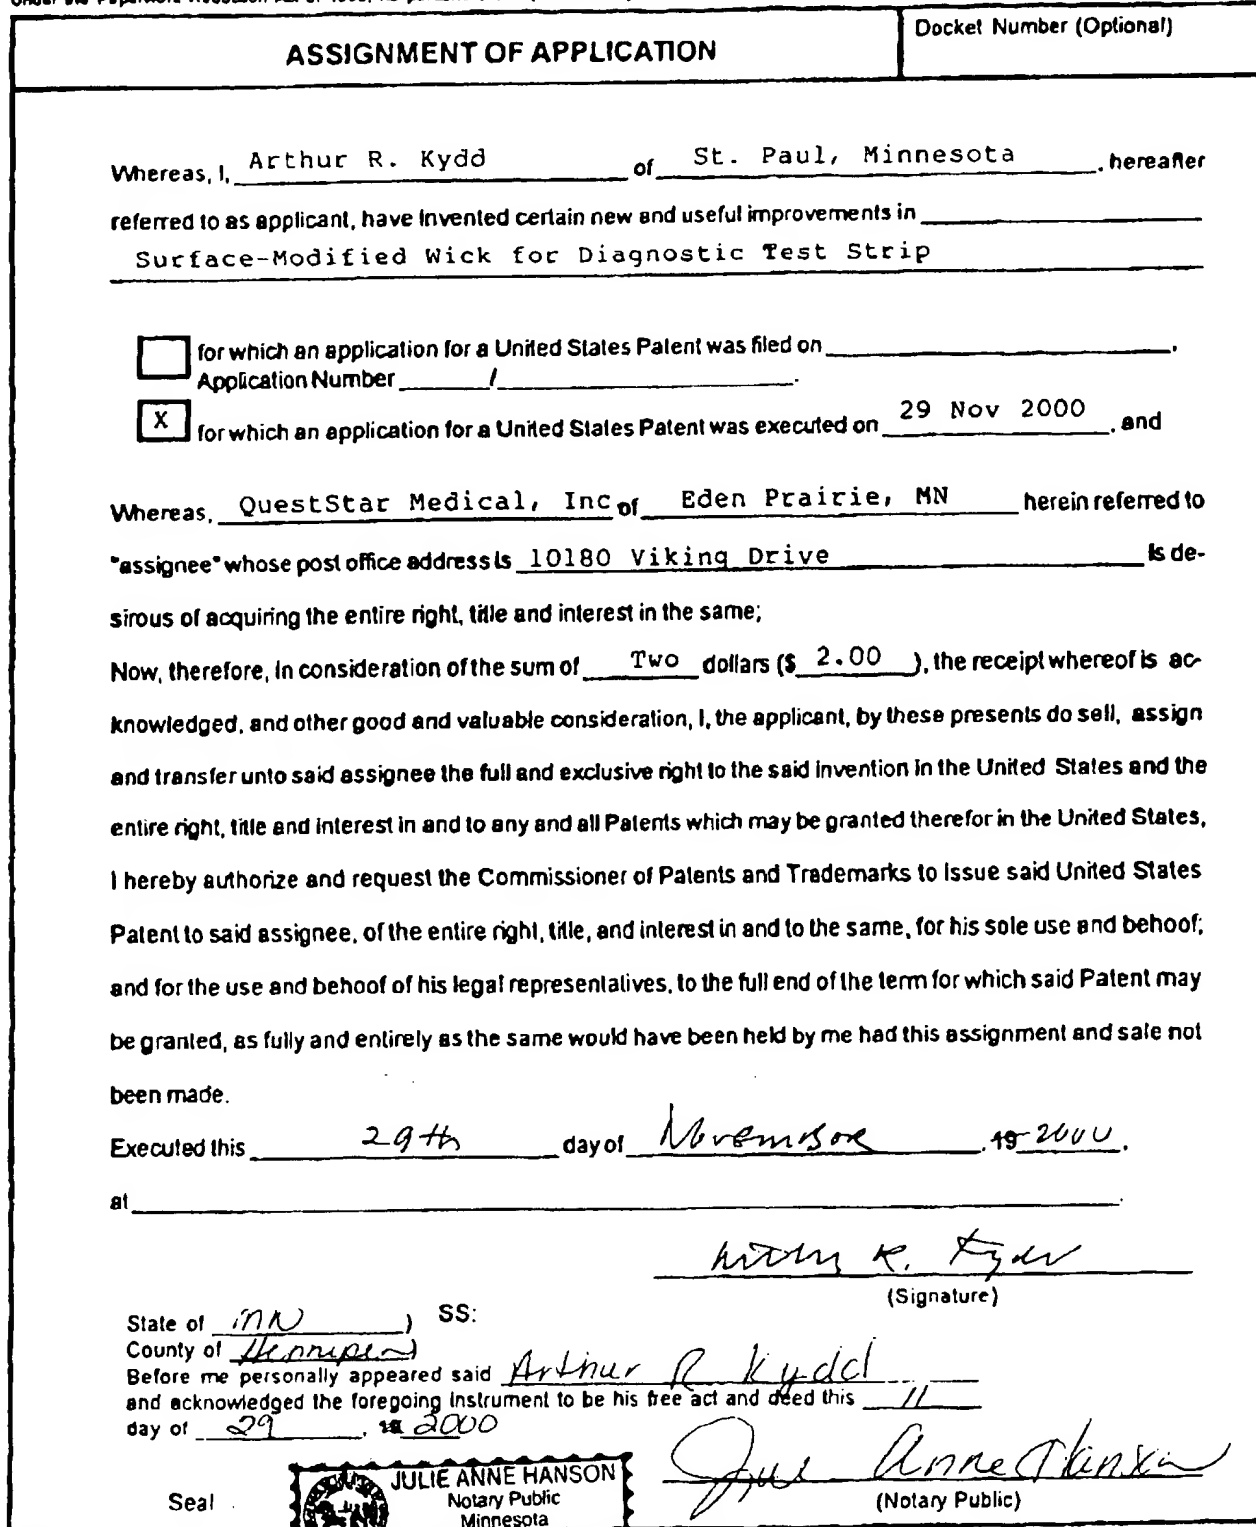 ASSIGNMENT OF APPLICATION
Docket Number (Optional)
Whereas, I, Arthur R. Kydd of St. Paul, Minnesota , hereafter
referred to as applicant, have invented certain new and useful improvements in
Surface-Modified Wick for Diagnostic Test Strip
for which an application for a United States Patent was filed on ,
Application Number / .
X for which an application for a United States Patent was executed on 29 Nov 2000 , and
Whereas, QuestStar Medical, Inc of Eden Prairie, MN herein referred to
"assignee" whose post office address is 10180 Viking Drive is de-
sirous of acquiring the entire right, title and interest in the same;
Now, therefore, in consideration of the sum of Two dollars ($ 2.00 ), the receipt whereof is ac-
knowledged, and other good and valuable consideration, I, the applicant, by these presents do sell, assign
and transfer unto said assignee the full and exclusive right to the said invention in the United States and the
entire right, title and interest in and to any and all Patents which may be granted therefor in the United States,
I hereby authorize and request the Commissioner of Patents and Trademarks to issue said United States
Patent to said assignee, of the entire right, title, and interest in and to the same, for his sole use and behoof;
and for the use and behoof of his legal representatives, to the full end of the term for which said Patent may
be granted, as fully and entirely as the same would have been held by me had this assignment and sale not
been made.
Executed this 29th day of November , 19 2000 ,
at .
Arthur R. Kydd
(Signature)
State of MN ) SS:
County of Hennepin )
Before me personally appeared said Arthur R Kydd
and acknowledged the foregoing instrument to be his free act and deed this 11
day of 29 , 19 2000
Julie Anne Hanson
Seal
JULIE ANNE HANSON
Notary Public
Minnesota
(Notary Public)